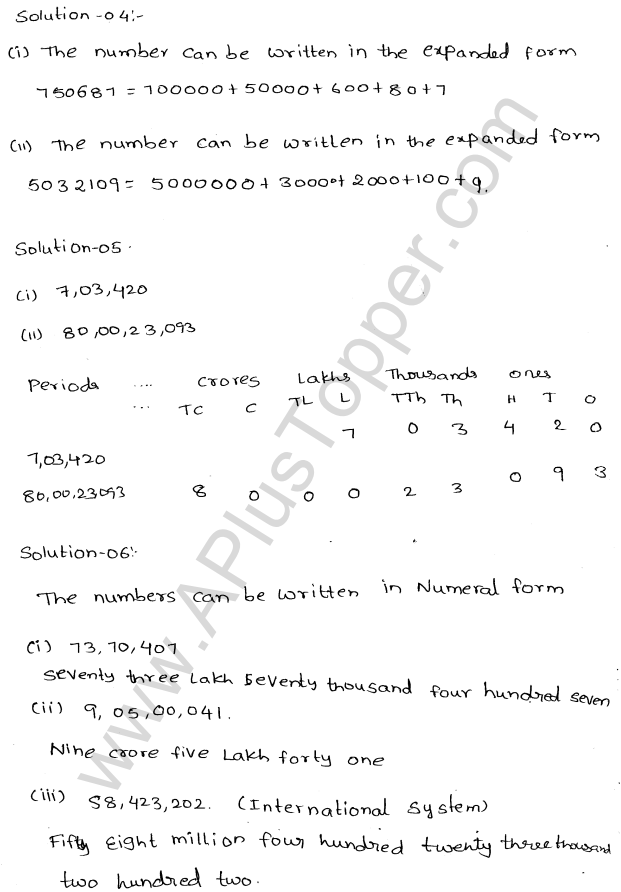 Solution-04:-
(i) The number can be written in the expanded form
750687 = 700000+50000+600+80+7
(ii) The number can be written in the expanded form
5032109 = 5000000+30000+2000+100+9.
Solution-05.
(i) 7,03,420
(ii) 80,00,23,093
Periods .... Crores Lakhs Thousands ones
... TC C TL L TTh Th H T O
7 0 3 4 2 0
7,03,420
80,00,23,093 8 0 0 0 2 3 0 9 3
Solution-06:-
The numbers can be written in Numeral form
(i) 73,70,407
Seventy three Lakh Seventy thousand four hundred seven
(ii) 9,05,00,041.
Nine crore five Lakh forty one
(iii) 58,423,202. (International System)
Fifty Eight million four hundred twenty three thousand
two hundred two.
www.APlusTopper.com